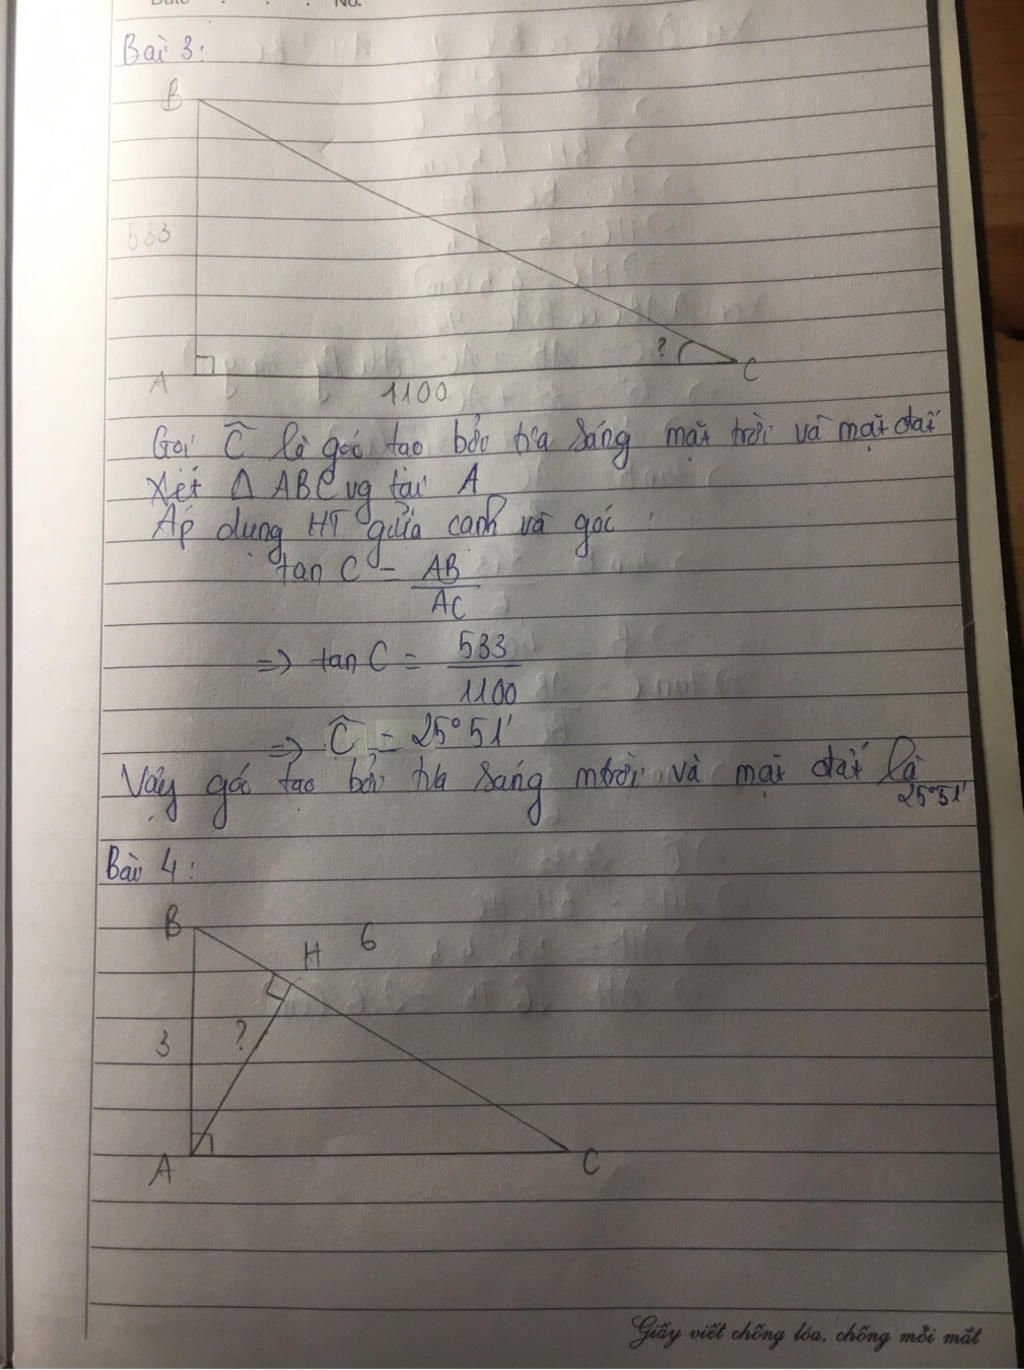 Date . . . No.
Bài 3:
B
533
?
A
C
1100
Gọi Ĉ là góc tạo bởi tia sáng mặt trời và mặt đất
Xét Δ ABC vg tại A
Áp dụng HT giữa cạnh và góc :
tan C = AB
AC
=> tan C = 533
1100
=> Ĉ = 25°51'
Vậy góc tạo bởi tia sáng mtrời và mặt đất là
25°51'
Bài 4:
B
H 6
3 ?
A
C
Giấy viết chống lóa, chống mỏi mắt